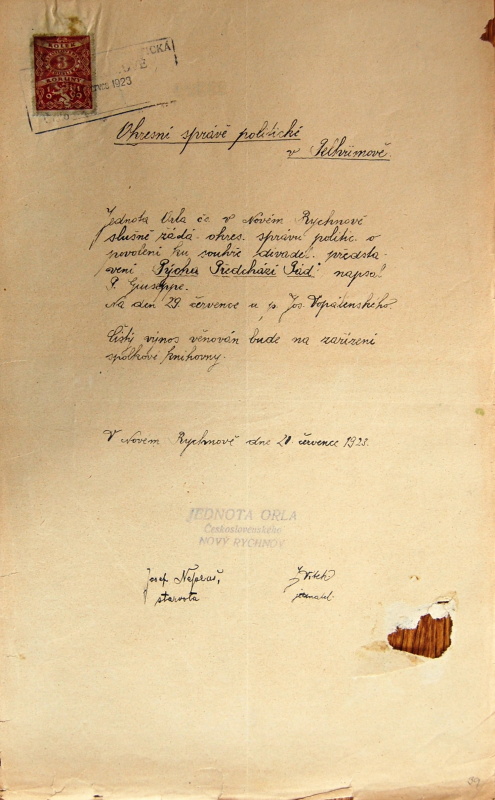 KOLEK
3
KORUNY
1923
Okresní správě politické
v Pelhřimově.
Jednota Orla čs. v Novém Rychnově
slušně žádá okres. správu politic. o
povolení ku souhře divadel. představení
"Pýcha Předchází Pád" napsal
P. Giuseppe.
Na den 29. července u p. Jos. Vopálenského
Čistý výnos věnován bude na zařízení
spolkové knihovny.
V Novém Rychnově dne 21 července 1923.
JEDNOTA ORLA
Československého
NOVÝ RYCHNOV
Josef
starosta
jednatel